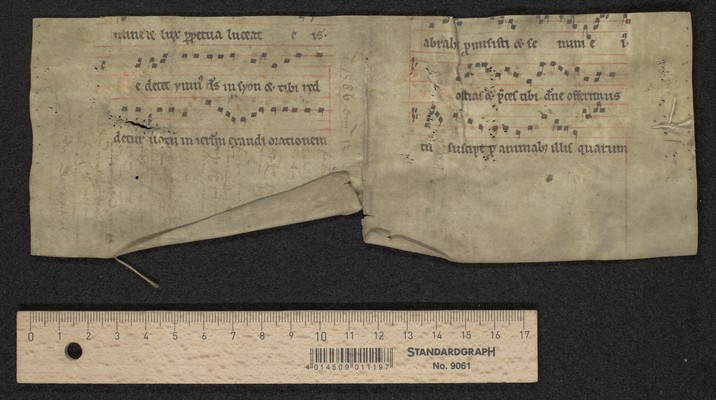 mine &c lux ppetua luceat e is.
e decet ymn⁹ ds in syon & tibi red
detur uotu in ierlm exaudi orationem
abrahe pmisisti & se mini e i⁹
ostias & pces tibi dne offerimus
tu suscipe p animab; illis quarum
0 1 2 3 4 5 6 7 8 9 10 11 12 13 14 15 16 17
4 014509 011197
STANDARDGRAPH
No. 9061